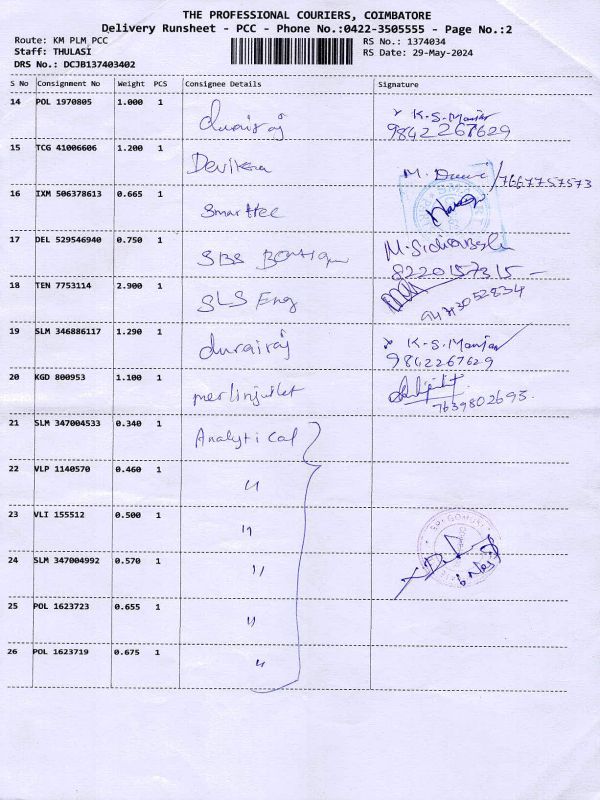 THE PROFESSIONAL COURIERS, COIMBATORE
Delivery Runsheet - PCC - Phone No.:0422-3505555 - Page No.:2
Route: KM PLM PCC RS No.: 1374034
Staff: THULASI RS Date: 29-May-2024
DRS No.: DCJB137403402
S No Consignment No Weight PCS Consignee Details Signature
14 POL 1970805 1.000 1 durairaj K-S-Manjar
9842267629
15 TCG 41006606 1.200 1 Devikera M. /7667757573
16 IXM 506378613 0.665 1 Smarttec
17 DEL 529546940 0.750 1 SBS Boutique
8220157315
18 TEN 7753114 2.900 1 SLS Eng
19 SLM 346886117 1.290 1 durairaj K-S-Manjar
9842267629
20 KGD 800953 1.100 1 merlinjutlet
7639802693.
21 SLM 347004533 0.340 1 Analytical
22 VLP 1140570 0.460 1 "
23 VLI 155512 0.500 1 "
24 SLM 347004992 0.570 1 "
25 POL 1623723 0.655 1 "
26 POL 1623719 0.675 1 "